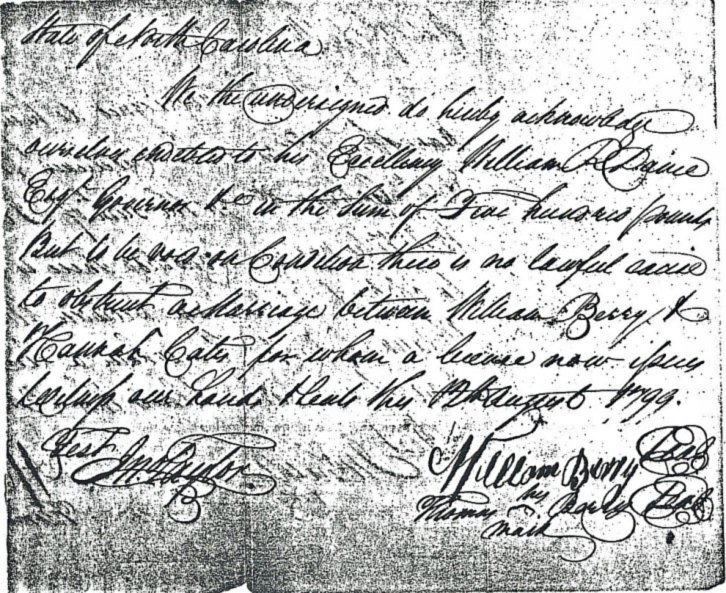 State of North Carolina
We the undersigned do hereby acknowledge
ourselves indebted to his Excellency William R Davie
Esqr. Governor &c in the Sum of Five hundred pounds
But to be void on Condition there is no lawful cause
to obstruct a Marriage between William Berry &
Hannah Cates for whom a license now issues
our hands & Seals this August 1799.
Test
William Berry Seal
Thomas his Seal
mark